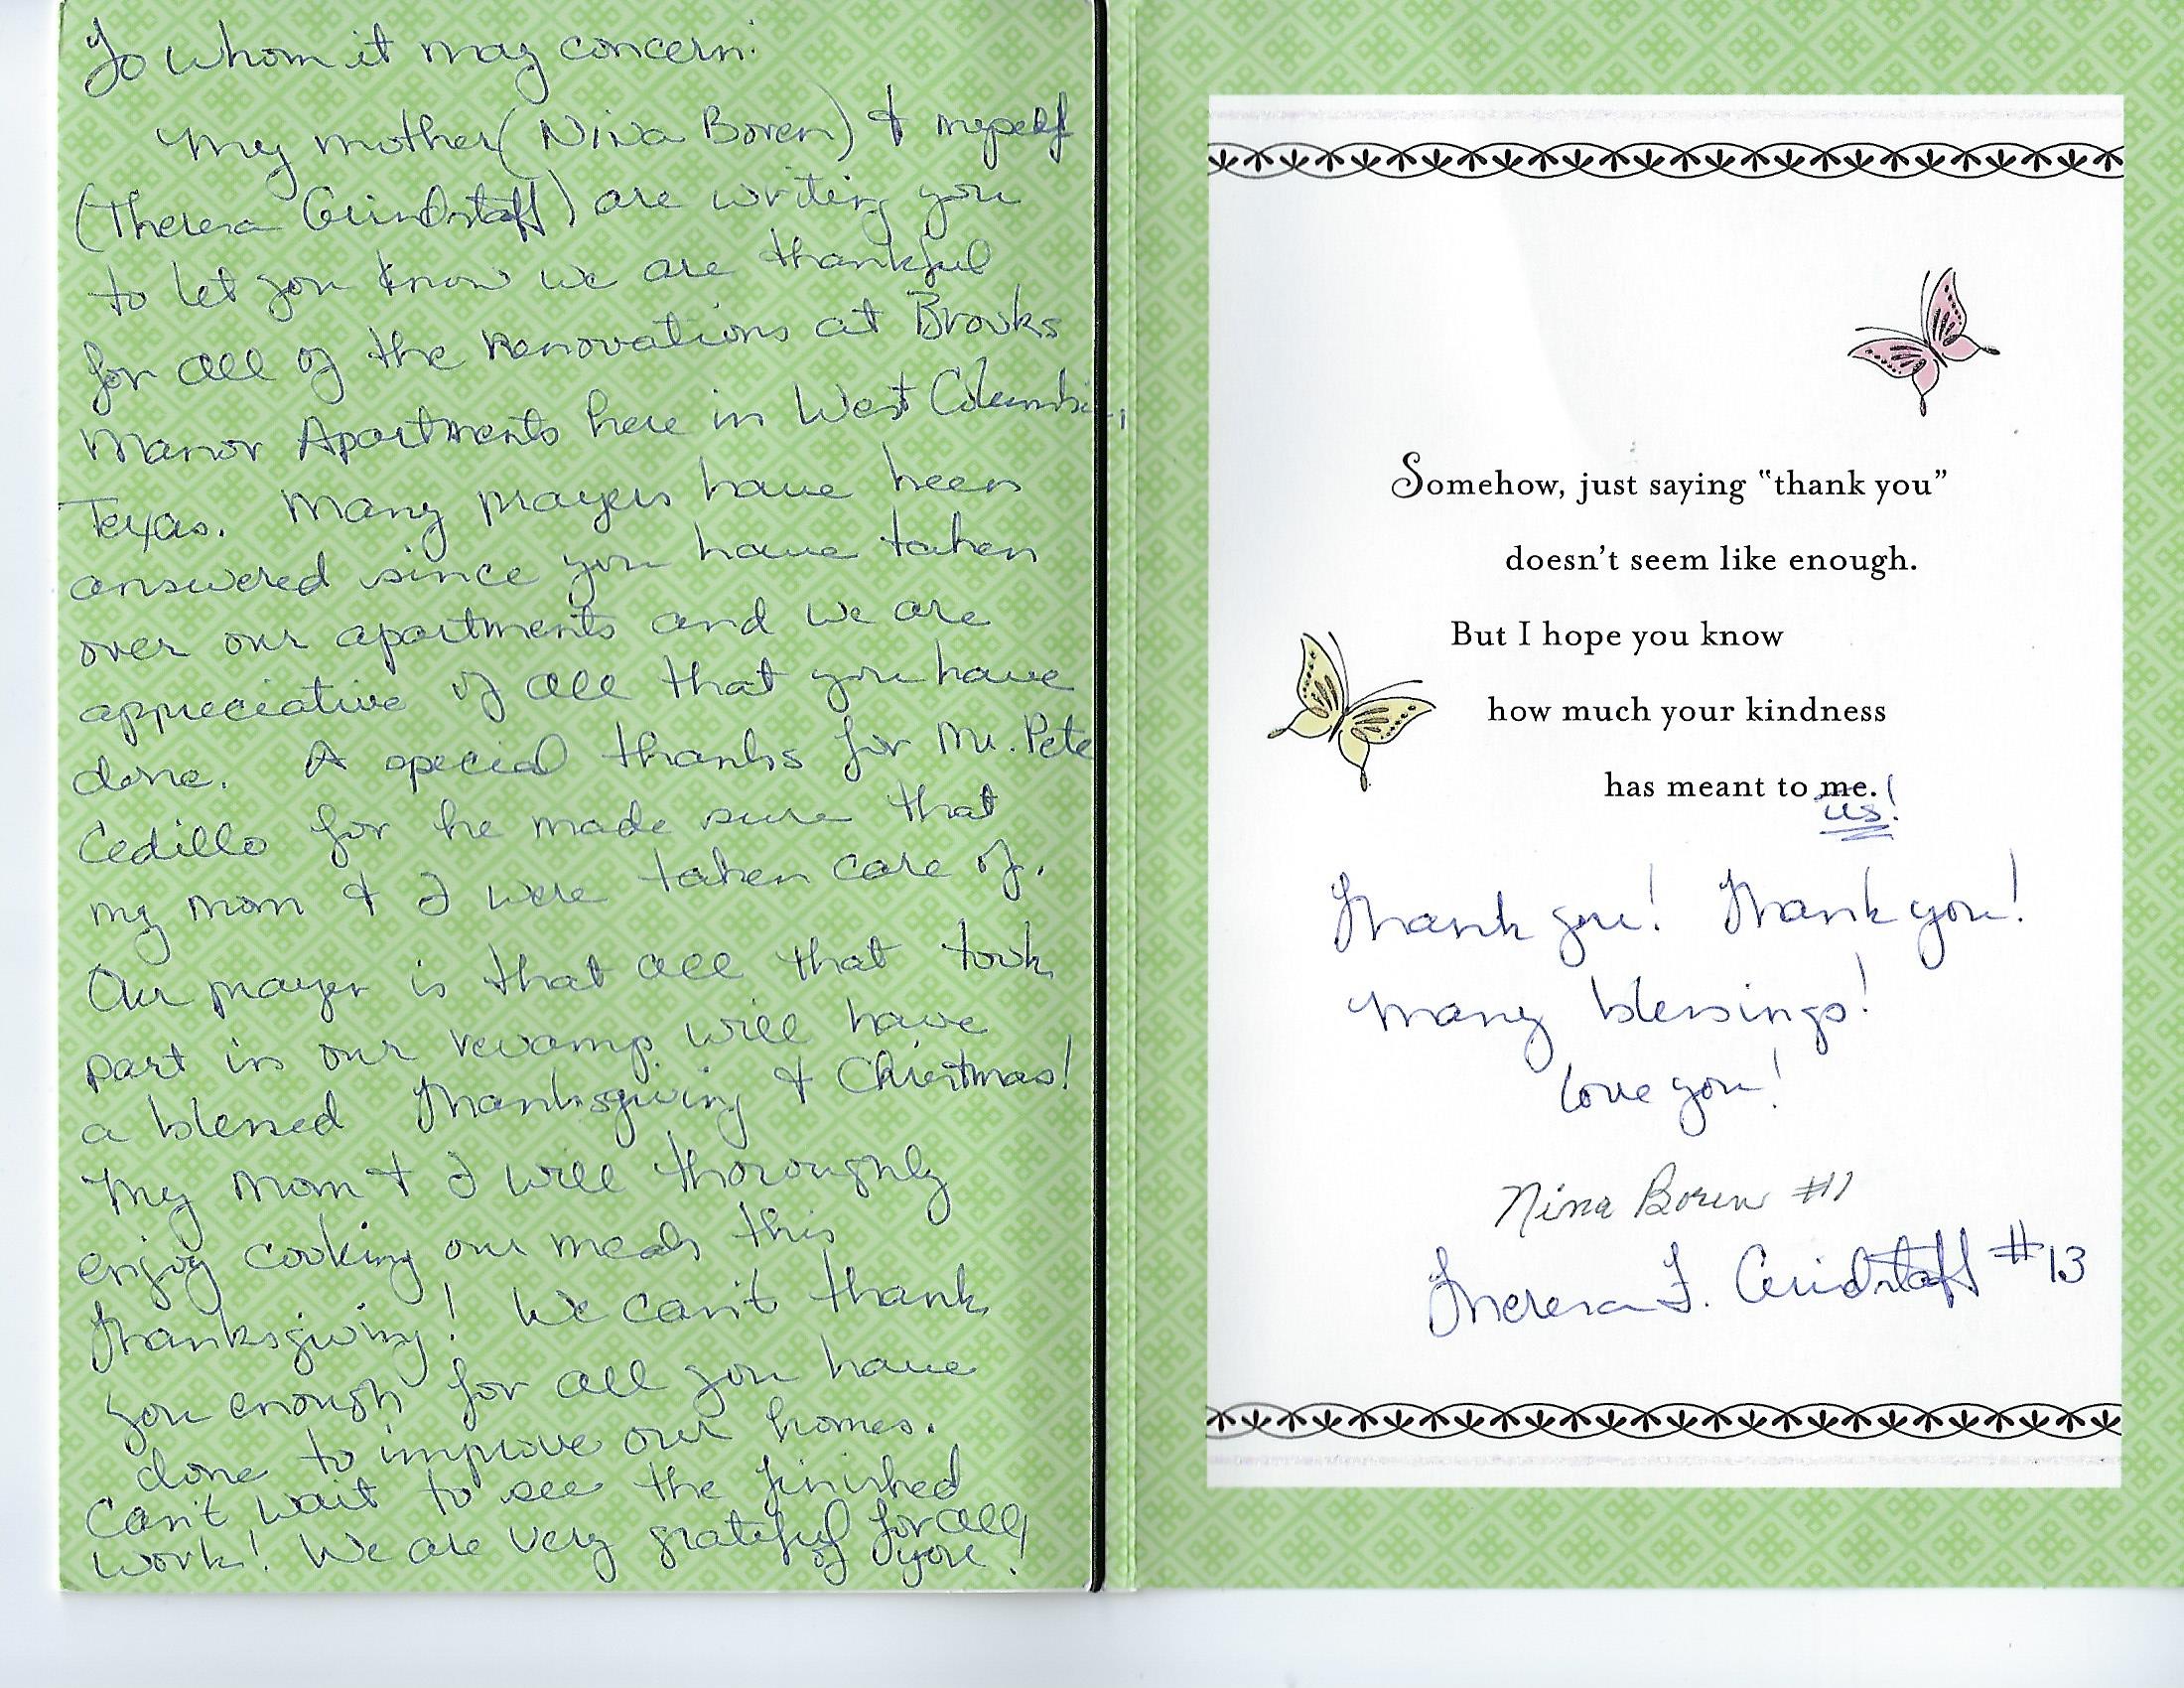 To whom it may concern:
My mother (Nina Boren) & myself
(Theresa Grindstaff) are writing you
to let you know we are thankful
for all of the renovations at Brooks
Manor Apartments here in West Columbia,
Texas. Many prayers have been
answered since you have taken
over our apartments and we are
appreciative of all that you have
done. A special thanks for Mr. Pete
Cedillo for he made sure that
my mom & I were taken care of.
Our prayer is that all that took
part in our revamp will have
a blessed Thanksgiving & Christmas!
My mom & I will thoroughly
enjoy cooking our meals this
Thanksgiving! We can't thank
you enough for all you have
done to improve our homes.
Can't wait to see the finished
work! We are very grateful for all
of you!
Somehow, just saying "thank you"
doesn't seem like enough.
But I hope you know
how much your kindness
has meant to me.
us!
Thank you! Thank you!
Many blessings!
Love you!
Nina Boren #11
Theresa F. Grindstaff #13